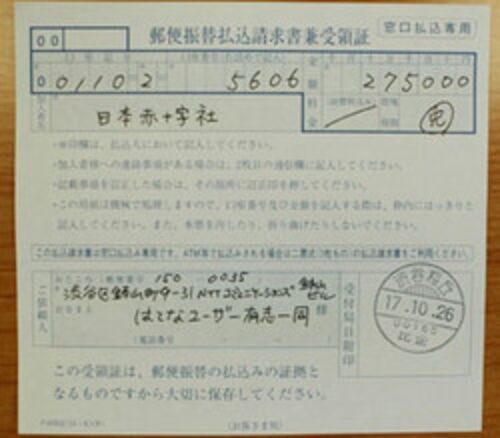 郵便振替払込請求書兼受領証
窓口払込専用
00
0 01102 5606 金額 275000
加入者名 日本赤十字社 料金 免
・※印欄は、払込人において記入してください。
・加入者様への連絡事項がある場合は、2枚目の通信欄に記入してください。
・記載事項を訂正した場合は、その個所に訂正印を押してください。
・この用紙は機械で処理しますので、口座番号及び金額を記入する際は、枠内にはっきりと
記入してください。また、本票を汚したり、折り曲げたりしないでください。
この払込請求書は窓口払込み専用です。ATM等で払込みされる場合は二票式(2枚もの)の払込書をご利用ください。
おところ(郵便番号 150 0035)
渋谷区鉢山町9-31 NTTコミュニケーションズ 鉢山ビル
ご依頼人 おなまえ はてなユーザー有志一同 様
(電話番号 )
受付局日附印
17.10.26
00165
この受領証は、郵便振替の払込みの証拠と
なるものですから大切に保存してください。
(お客さま用)